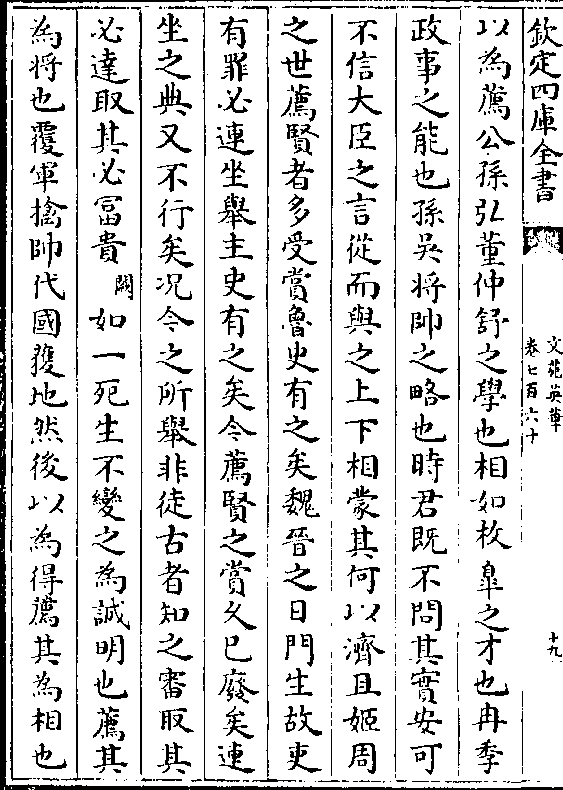 欽定四庫全書
文苑英華
卷七百六十
十九
以為薦公孫弘董仲舒之學也相如枚臯之才也冉季
政事之能也孫吳将帥之略也時君既不問其實安可
不信大臣之言從而與之上下相蒙其何以濟且姬周
之世薦賢者多受賞魯史有之矣魏晉之日門生故吏
有罪必連坐舉主史有之矣今薦賢之賞乆已廢矣連
坐之典又不行矣况今之所舉非徒古者知之審取其
必達取其必冨貴闕如一死生不變之為誠明也薦其
為将也覆軍擒帥代國獲地然後以為得薦其為相也